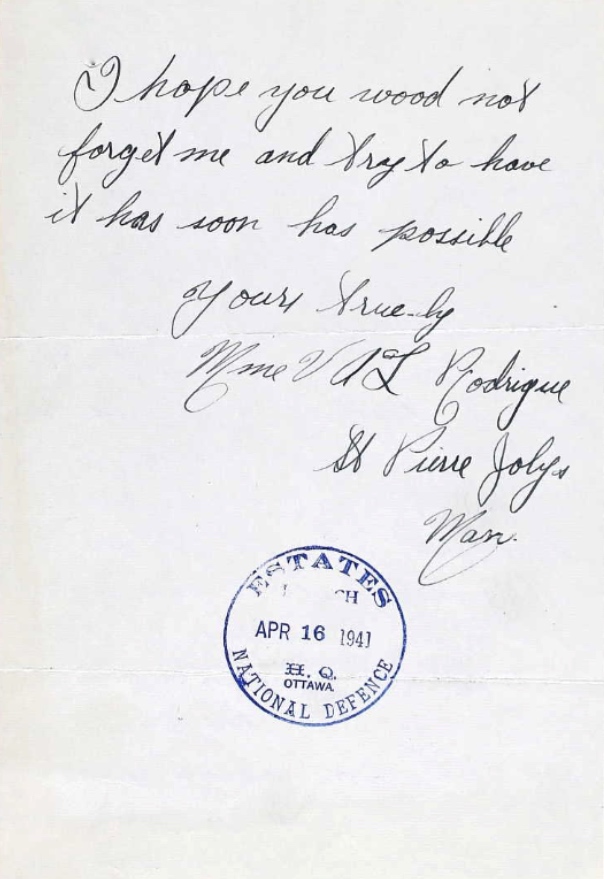 I hope you wood not
forget me and try to have
it has soon has possible
Yours true-ly
Mme VAL Rodrigue
St Pierre Jolys
Man.
ESTATES
CH
APR 16 1941
H. Q.
OTTAWA
NATIONAL DEFENCE